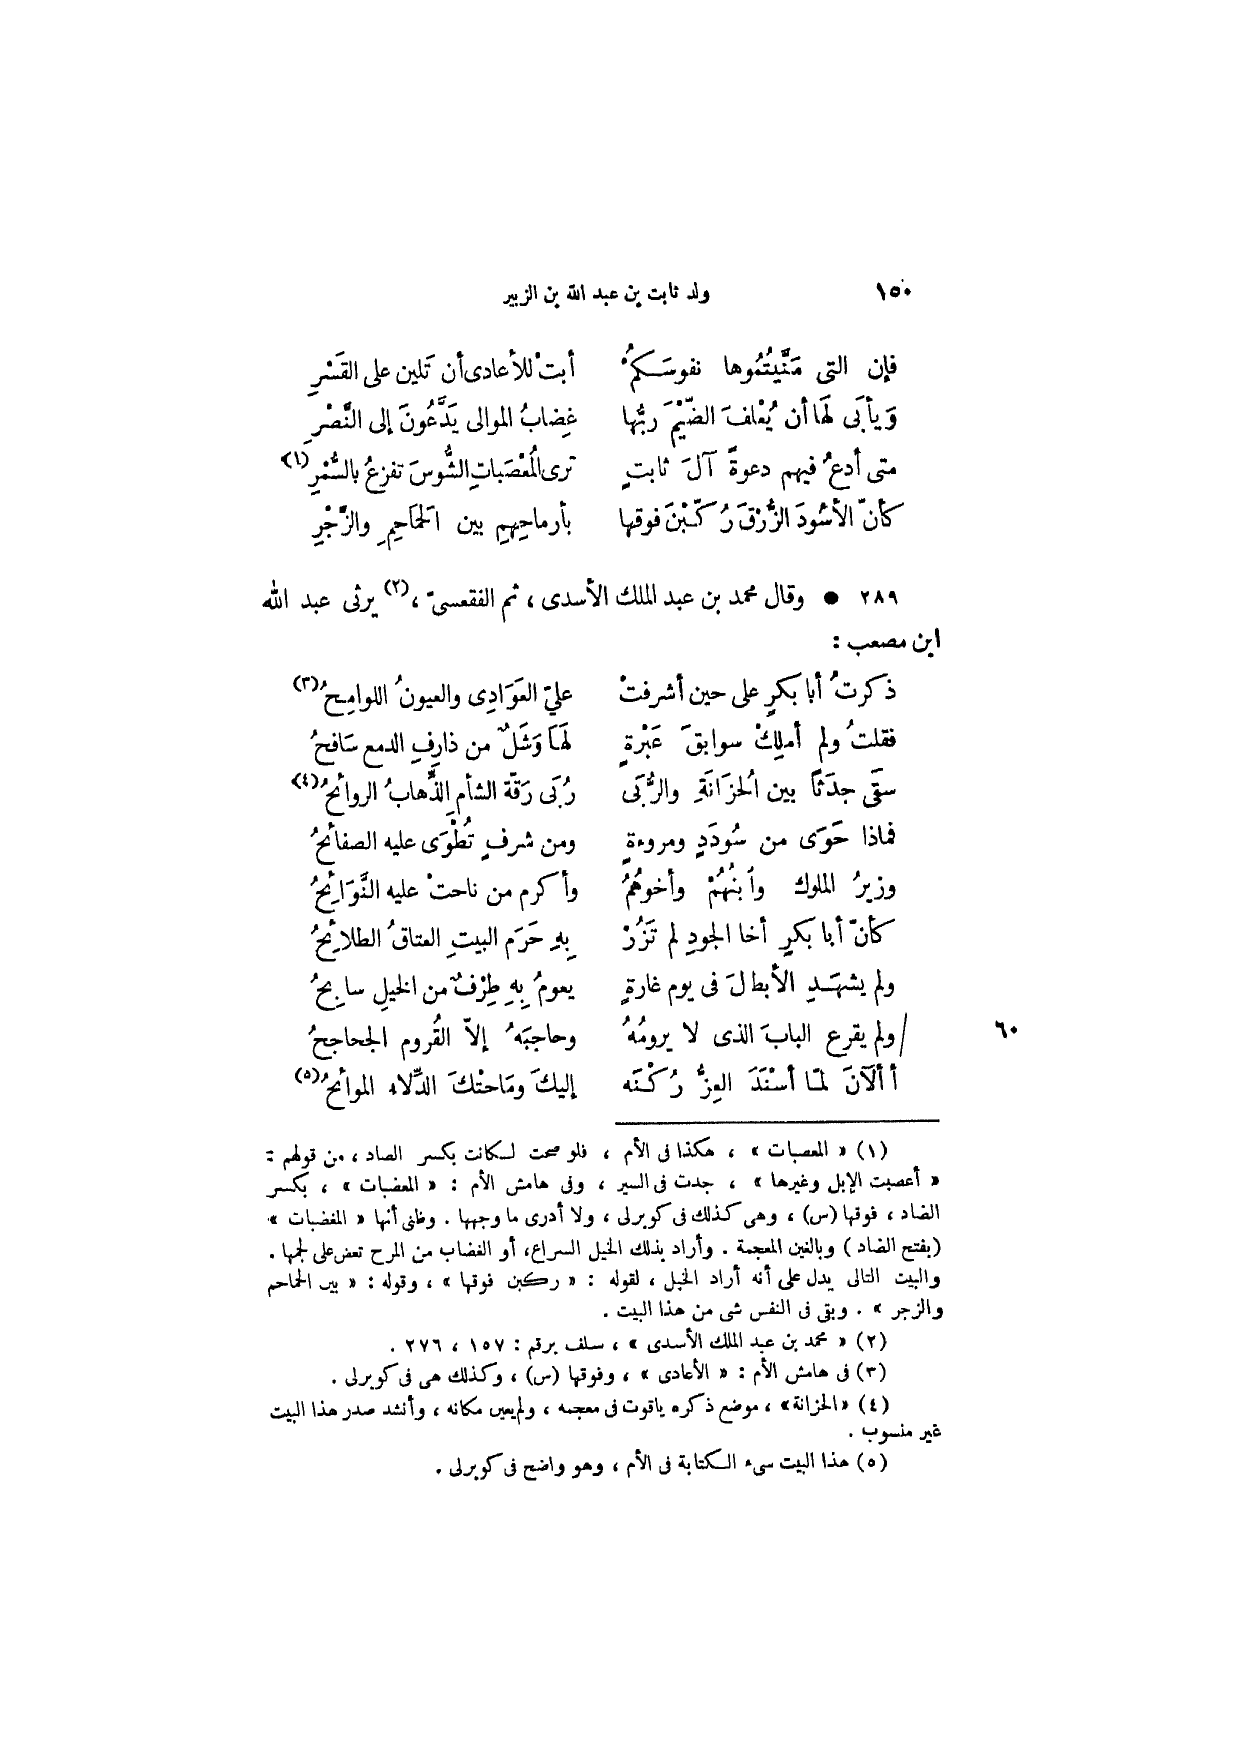 ١٥٠ ولد ثابت بن عبد الله بن الزبير
فإن التى مَنَّيتُمُوها نفوسَكمُ أبتْ للأعادى أن تَلين على القَسْرِ
وَيأبَى لهَا أن يُعْلفَ الضَّيْمَ ربُّها غِضابُ الموالى يَدَّعُونَ إلى النَّصْرِ
متى أدعُ فيهم دعوةً آلَ ثابتٍ ترى المُعْصَباتِ الشُّوسَ تفزعُ بالسُّمْرِ(١)
كأنّ الأسُودَ الزُّرْقَ رُكّبْنَ فوقها بأرماحِهِمِ بين الحَمَاحِمِ والزَّجْرِ
٢٨٩ ● وقال محمد بن عبد الملك الأسدى ، ثم الفقعسىّ ،(٢) يرثى عبد الله
ابن مصعب :
ذكرتُ أبا بكرٍ على حين أشرفتْ علىّ العَوَادِى والعيونُ اللوامِحُ(٣)
فقلتُ ولم أملِكْ سوابقَ عَبْرةٍ لهَا وَشَلٌ من ذارِفِ الدمع سَافحُ
سقَى جدَثًا بين الخُزَانَةِ والرُّبَى رُبَى رَقّة الشأمِ الذَّهابُ الروائحُ(٤)
فماذا حَوَى من سُودَدٍ ومروءةٍ ومن شرفٍ تُطْوَى عليه الصفائحُ
وزيرُ الملوك وٱبنُهُمْ وأخوهُمُ وأكرم من ناحتْ عليه النَّوَائِحُ
كأنّ أبا بكرٍ أخا الجودِ لم تَزُرْ بِهِ حَرَم البيتِ العتاقُ الطلائِحُ
ولم يشهَدِ الأبطالَ فى يوم غارةٍ يعومُ بِهِ طِرْفٌ من الخيلِ سابِحُ
/ولم يقرع البابَ الذى لا يرومُهُ وحاجبَهُ إلاّ القُروم الجحاجحُ ٦٠
أألآنَ لمّا أسْنَدَ العِزُّ رُكْنَه إليكَ ومَاحتْكَ الدِّلاء الموائحُ(٥)
(١) « المعصبات » ، هكذا فى الأم ، فلو صحت لكانت بكسر الصاد ، من قولهم :
« أعصبت الإبل وغيرها » ، جدت فى السير ، وفى هامش الأم : « المعضبات » ، بكسر
الضاد ، فوقها (س) ، وهى كذلك فى كوبرلى ، ولا أدرى ما وجهها . وظنى أنها « المغضبات »
(بفتح الضاد ) وبالغين المعجمة . وأراد بذلك الخيل السراع، أو الغضاب من المرح تعض على لجمها .
والبيت التالى يدل على أنه أراد الخيل ، لقوله : « ركبن فوقها » ، وقوله : « بين الحماحم
والزجر » . وبقى فى النفس شى من هذا البيت .
(٢) « محمد بن عبد الملك الأسدى » ، سلف برقم : ١٥٧ ، ٢٧٦ .
(٣) فى هامش الأم : « الأعادى » ، وفوقها (س) ، وكذلك هى فى كوبرلى .
(٤) «الخزانة» ، موضع ذكره ياقوت فى معجمه ، ولم يعين مكانه ، وأنشد صدر هذا البيت
غير منسوب .
(٥) هذا البيت سىء الكتابة فى الأم ، وهو واضح فى كوبرلى .